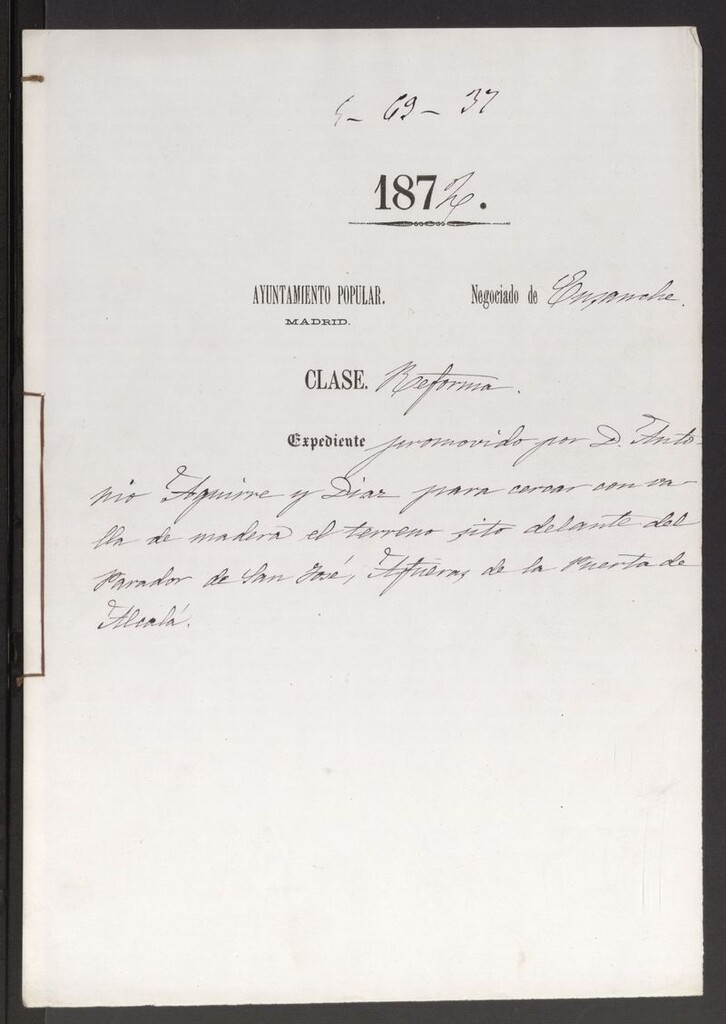 5 - 69 - 37
1872.
AYUNTAMIENTO POPULAR.
MADRID.
Negociado de Ensanche.
CLASE. Reforma.
Expediente promovido por D. Anto-
nio Aguirre y Diaz para cercar con va-
lla de madera el terreno sito delante del
Parador de San José, Afueras de la Puerta de
Alcalá.